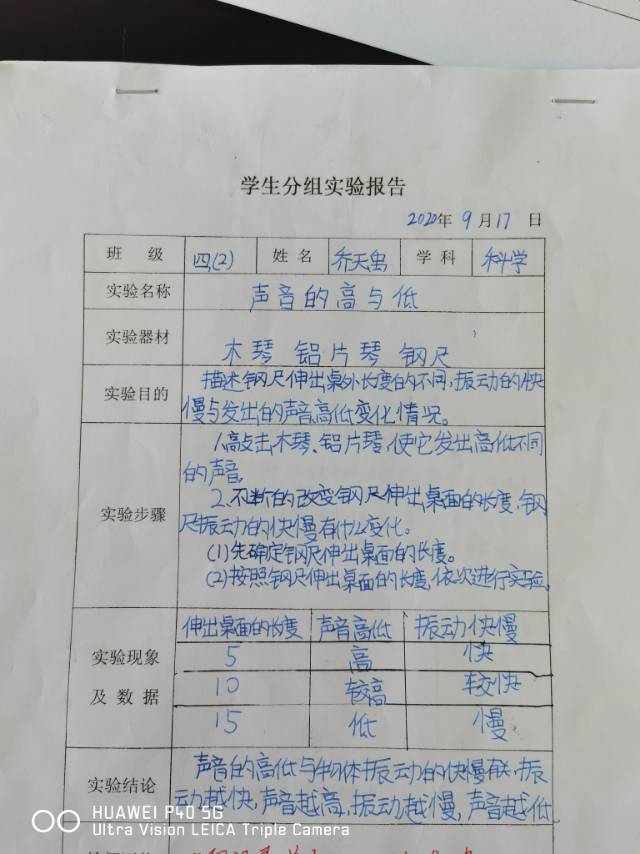 学生分组实验报告
2020年 9月17日
班 级 四(2) 姓 名 学 科 科学
实验名称 声音的高与低
实验器材 木琴 铝片琴 钢尺
实验目的 描述钢尺伸出桌外长度的不同,振动的快
慢与发出的声音高低变化情况。
1.敲击木琴、铝片琴,使它发出高低不同
的声音。
2.不断的改变钢尺伸出桌面的长度,钢
实验步骤 尺振动的快慢有什么变化。
(1)先确定钢尺伸出桌面的长度。
(2)按照钢尺伸出桌面的长度,依次进行实验
伸出桌面的长度 声音高低 振动快慢
实验现象 5 高 快
及 数 据 10 较高 较快
15 低 慢
声音的高低与物体振动的快慢有关,振
实验结论 动越快,声音越高,振动越慢,声音越低
HUAWEI P40 5G
Ultra Vision LEICA Triple Camera